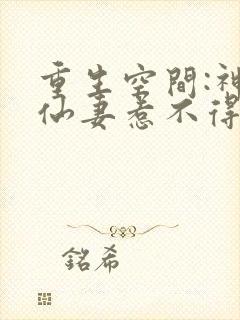 重生空間:神
仙妻惹不得
銘希